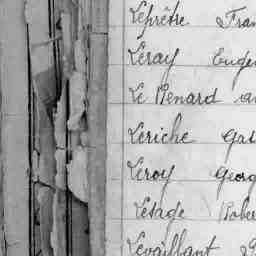 Leprêtre Fran
Leray Euge
Le Renard
Leriche Gas
Leroy Georg
Lesage Rober
Levaillant